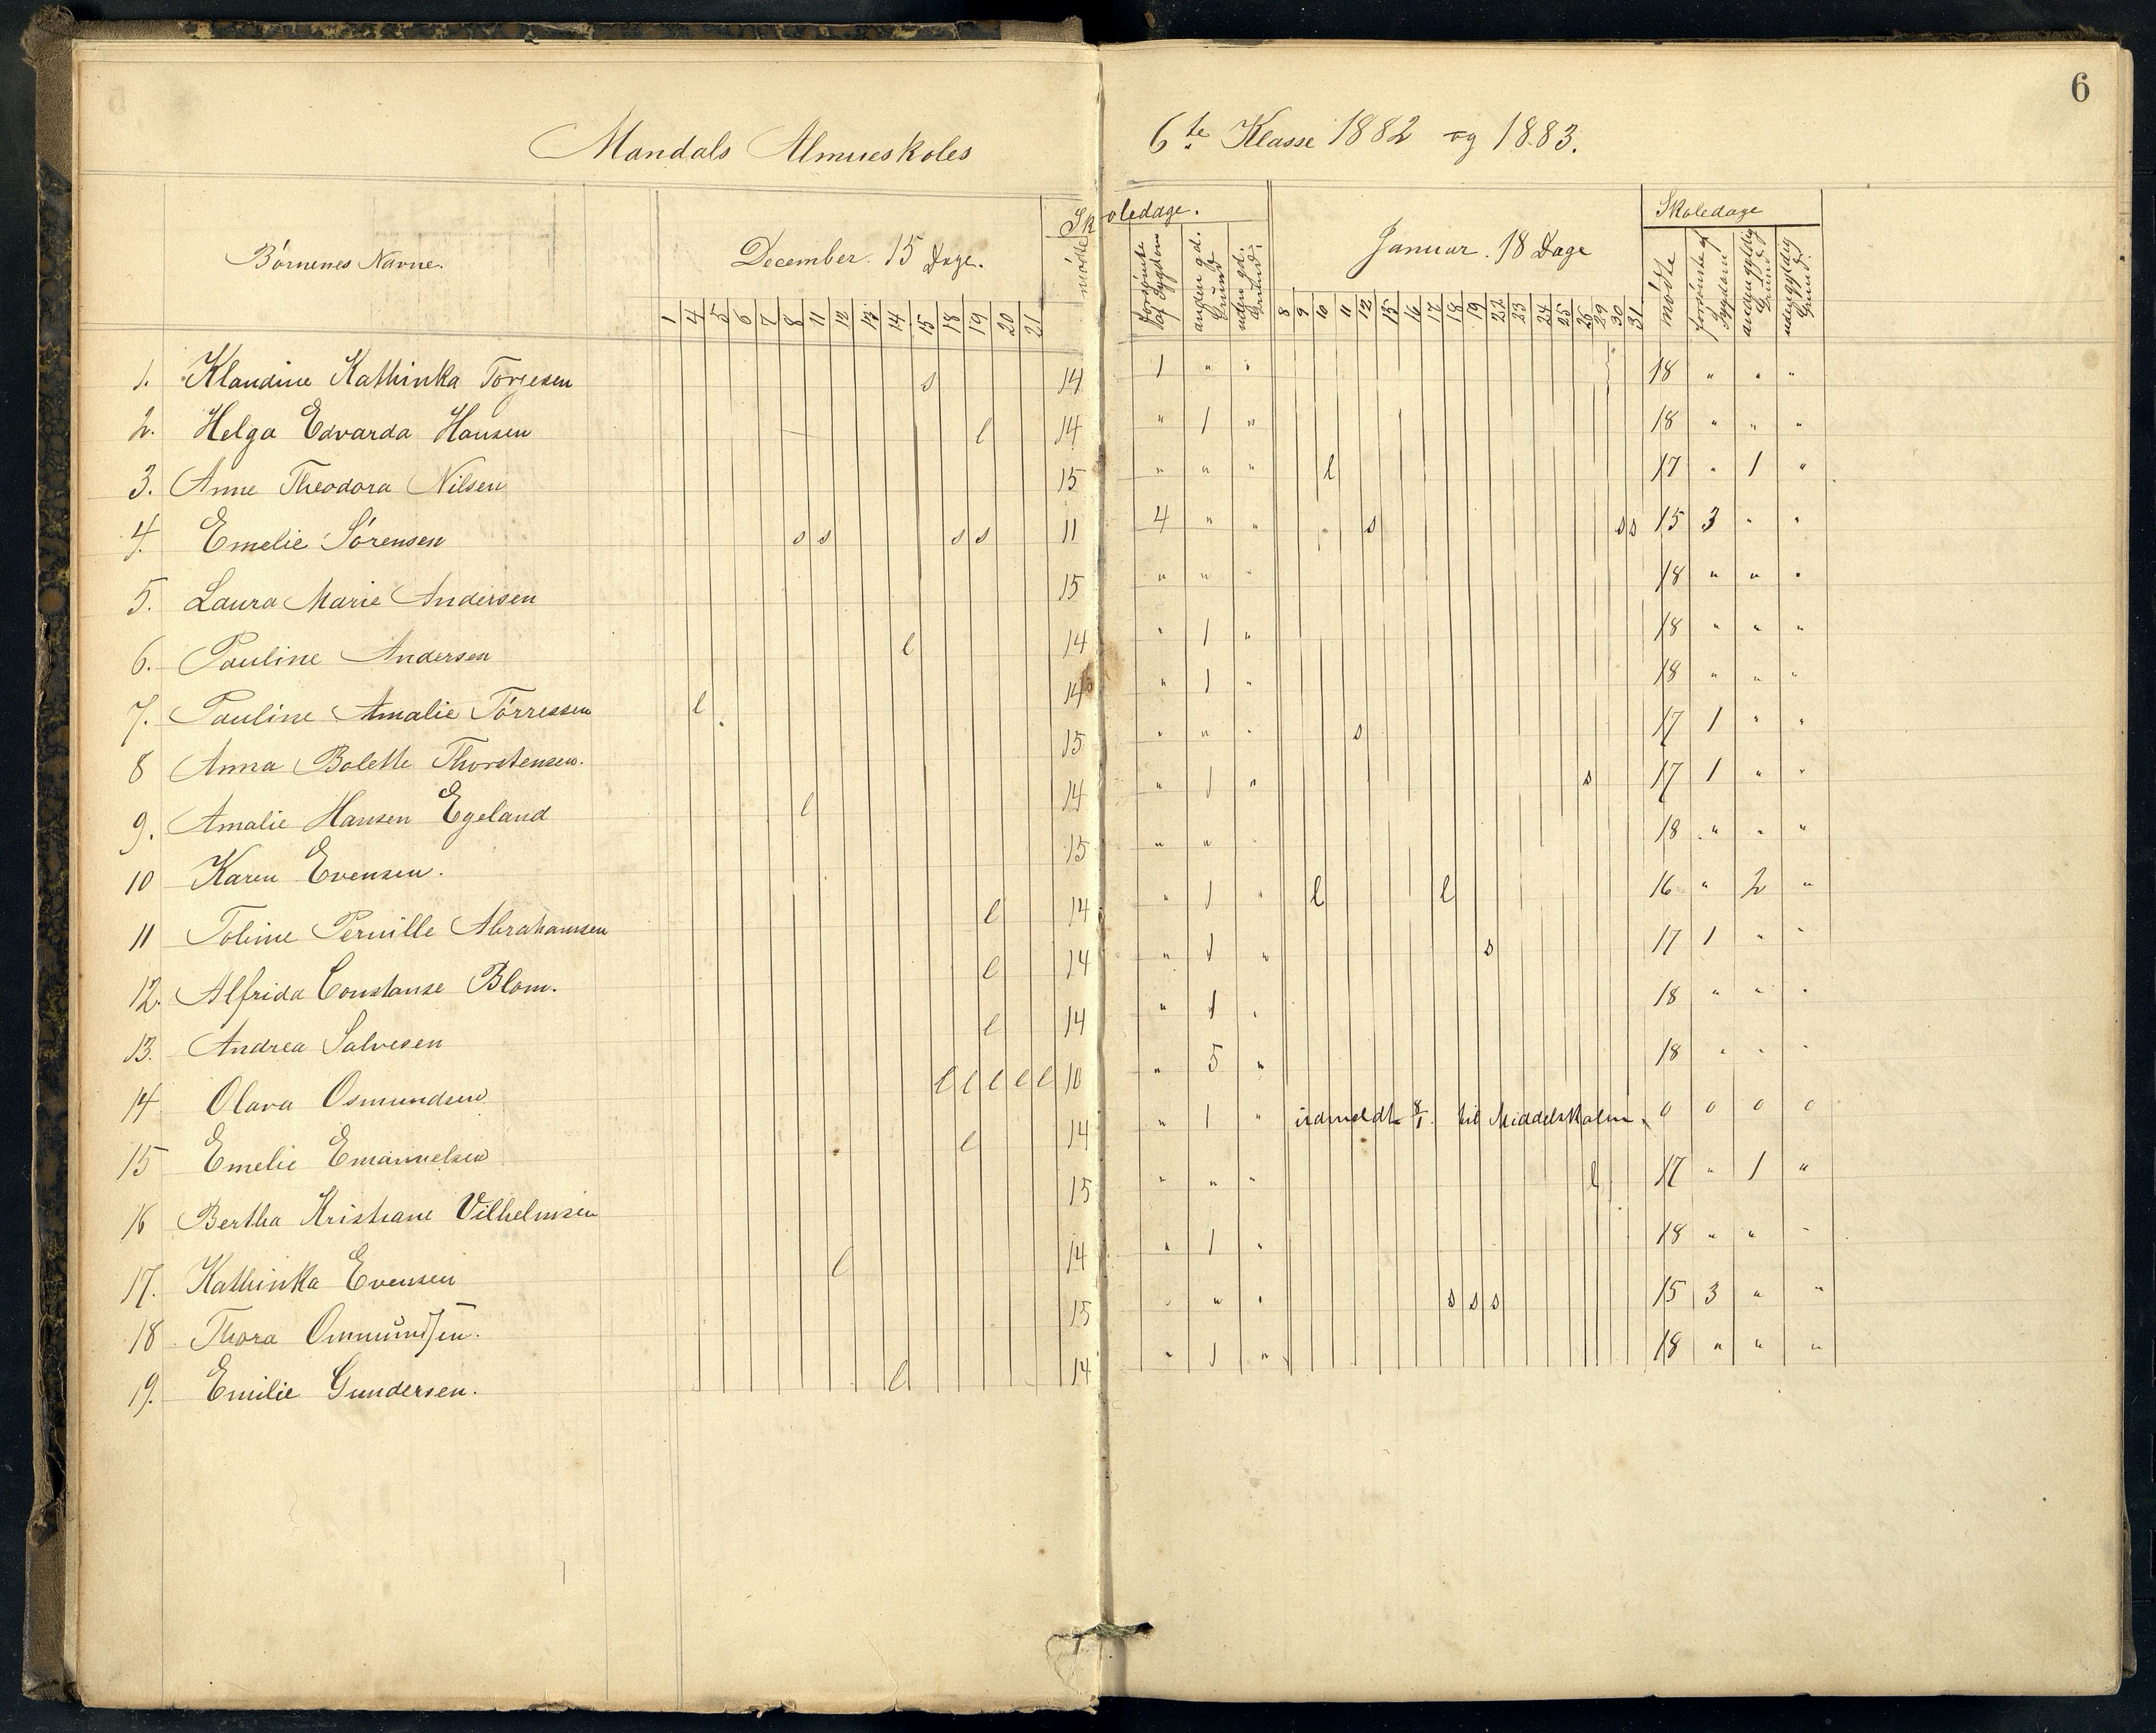 6
Mandals Almueskoles 6te Klasse 1882 og 1883.
Børnenes Navne. December. 15 Dage. Skoledage. Januar. 18 Dage Skoledage
1 4 5 6 7 8 11 12 13 14 15 18 19 20 21 mødte forsømte af Sygdom anden gd. Grund uden gd. Grund. 8 9 10 11 12 15 16 17 18 19 22 23 24 25 26 29 30 31 mødte forsømte af Sygdom anden gyldig Grund uden gyldig Grund.
1. Klaudine Kathinka Torjesen s 14 1 " " 18 " " "
2. Helga Edvarda Hansen l 14 " 1 " 18 " " "
3. Anne Theodora Nilsen 15 " " " l 17 " 1 "
4. Emelie Sørensen s s s s 11 4 " " s s s 15 3 " "
5. Laura Marie Andersen 15 " " " 18 " " "
6. Pauline Andersen l 14 " 1 " 18 " " "
7. Pauline Amalie Tørressen l 14 " 1 " 18 " " "
8 Anna Bolette Thorstensen. 15 " " " s 17 1 " "
9. Amalie Hansen Egeland l 14 " 1 " s 17 1 " "
10 Karen Evensen. 15 " " " 18 " " "
11 Tobine Pernille Abrahamsen l 14 " 1 " l l 16 " 2 "
12. Alfrida Constanse Blom. l 14 " 1 " s 17 1 " "
13. Andrea Salvesen l 14 " 1 " 18 " " "
14 Olava Osmundsen l l l l l 10 " 5 " 18 " " "
15 Emelie Emanuelsen l 14 " 1 " udmeldt 8/1. til Middelskolen. 0 0 0 0
16 Bertha Kristiane Vilhelmsen 15 " " " l 17 " 1 "
17. Kathinka Evensen l 14 " 1 " 18 " " "
18 Thora Ommundsen. 15 " " " s s s 15 3 " "
19. Emilie Gundersen. l 14 " 1 " 18 " " "